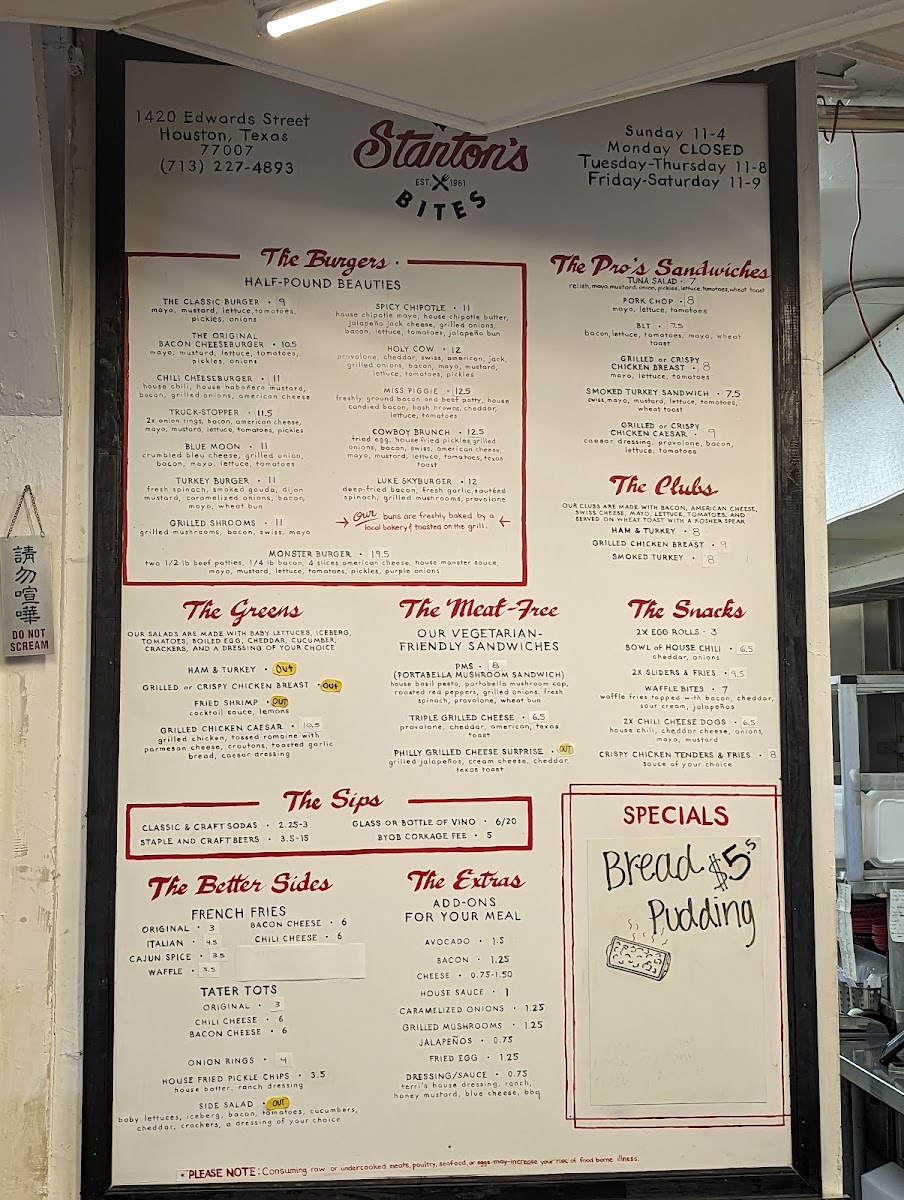 1420 Edwards Street
Houston, Texas
77007
(713) 227-4893
Stanton's
EST. 1961
BITES
Sunday 11-4
Monday CLOSED
Tuesday-Thursday 11-8
Friday-Saturday 11-9
The Burgers
HALF-POUND BEAUTIES
THE CLASSIC BURGER • 9
mayo, mustard, lettuce, tomatoes,
pickles, onions
THE ORIGINAL
BACON CHEESEBURGER • 10.5
mayo, mustard, lettuce, tomatoes,
pickles, onions
CHILI CHEESEBURGER • 11
house chili, house habañero mustard,
bacon, grilled onions, american cheese
TRUCK-STOPPER • 11.5
2x onion rings, bacon, american cheese,
mayo, mustard, lettuce, tomatoes, pickles
BLUE MOON • 11
crumbled bleu cheese, grilled onion,
bacon, mayo, lettuce, tomatoes
TURKEY BURGER • 11
fresh spinach, smoked gouda, dijon
mustard, caramelized onions, bacon,
mayo, wheat bun
GRILLED SHROOMS • 11
grilled mushrooms, bacon, swiss, mayo
SPICY CHIPOTLE • 11
house chipotle mayo, house chipotle butter,
jalapeño jack cheese, grilled onions,
bacon, lettuce, tomatoes, jalapeño bun
HOLY COW • 12
provolone, cheddar, swiss, american, jack,
grilled onions, bacon, mayo, mustard,
lettuce, tomatoes, pickles
MISS PIGGIE • 12.5
freshly ground bacon and beef patty, house
candied bacon, hash browns, cheddar,
lettuce, tomatoes
COWBOY BRUNCH • 12.5
fried egg, house fried pickles, grilled
onions, bacon, swiss, american cheese,
mayo, mustard, lettuce, tomatoes, texas
toast
LUKE SKYBURGER • 12
deep-fried bacon, fresh garlic, sautéed
spinach, grilled mushrooms, provolone
Our buns are freshly baked by a
local bakery & toasted on the grill.
MONSTER BURGER • 19.5
two 1/2 lb beef patties, 1/4 lb bacon, 4 slices american cheese, house monster sauce,
mayo, mustard, lettuce, tomatoes, pickles, purple onions
The Pro's Sandwiches
TUNA SALAD • 7
relish, mayo, mustard, onion, pickles, lettuce, tomatoes, wheat toast
PORK CHOP • 8
mayo, lettuce, tomatoes
BLT • 7.5
bacon, lettuce, tomatoes, mayo, wheat
toast
GRILLED or CRISPY
CHICKEN BREAST • 8
mayo, lettuce, tomatoes
SMOKED TURKEY SANDWICH • 7.5
swiss, mayo, mustard, lettuce, tomatoes,
wheat toast
GRILLED or CRISPY
CHICKEN CAESAR • 9
caesar dressing, provolone, bacon,
lettuce, tomatoes
The Clubs
OUR CLUBS ARE MADE WITH BACON, AMERICAN CHEESE,
SWISS CHEESE, MAYO, LETTUCE, TOMATOES, AND
SERVED ON WHEAT TOAST WITH A KOSHER SPEAR
HAM & TURKEY • 8
GRILLED CHICKEN BREAST • 9
SMOKED TURKEY • 8
The Greens
OUR SALADS ARE MADE WITH BABY LETTUCES, ICEBERG,
TOMATOES, BOILED EGG, CHEDDAR, CUCUMBER,
CRACKERS, AND A DRESSING OF YOUR CHOICE
HAM & TURKEY • OUT
GRILLED or CRISPY CHICKEN BREAST • OUT
FRIED SHRIMP • OUT
cocktail sauce, lemons
GRILLED CHICKEN CAESAR • 10.5
grilled chicken, tossed romaine with
parmesan cheese, croutons, toasted garlic
bread, caesar dressing
The Meat-Free
OUR VEGETARIAN-
FRIENDLY SANDWICHES
PMS • 8
(PORTABELLA MUSHROOM SANDWICH)
house basil pesto, portabella mushroom cap,
roasted red peppers, grilled onions, fresh
spinach, provolone, wheat bun
TRIPLE GRILLED CHEESE • 6.5
provolone, cheddar, american, texas
toast
PHILLY GRILLED CHEESE SURPRISE • OUT
grilled jalapeños, cream cheese, cheddar,
texas toast
The Snacks
2X EGG ROLLS • 3
BOWL of HOUSE CHILI • 6.5
cheddar, onions
2X SLIDERS & FRIES • 9.5
WAFFLE BITES • 7
waffle fries topped with bacon, cheddar,
sour cream, jalapeños
2X CHILI CHEESE DOGS • 6.5
house chili, cheddar cheese, onions,
mayo, mustard
CRISPY CHICKEN TENDERS & FRIES • 8
sauce of your choice
The Sips
CLASSIC & CRAFT SODAS • 2.25-3
STAPLE AND CRAFT BEERS • 3.5-15
GLASS OR BOTTLE OF VINO • 6/20
BYOB CORKAGE FEE • 5
The Better Sides
FRENCH FRIES
ORIGINAL • 3
ITALIAN • 4.5
CAJUN SPICE • 3.5
WAFFLE • 3.5
BACON CHEESE • 6
CHILI CHEESE • 6
TATER TOTS
ORIGINAL • 3
CHILI CHEESE • 6
BACON CHEESE • 6
ONION RINGS • 4
HOUSE FRIED PICKLE CHIPS • 3.5
house batter, ranch dressing
SIDE SALAD • OUT
baby lettuces, iceberg, bacon, tomatoes, cucumbers,
cheddar, crackers, a dressing of your choice
The Extras
ADD-ONS
FOR YOUR MEAL
AVOCADO • 1.5
BACON • 1.25
CHEESE • 0.75-1.50
HOUSE SAUCE • 1
CARAMELIZED ONIONS • 1.25
GRILLED MUSHROOMS • 1.25
JALAPEÑOS • 0.75
FRIED EGG • 1.25
DRESSING/SAUCE • 0.75
terri's house dressing, ranch,
honey mustard, blue cheese, bbq
SPECIALS
Bread $5.5
Pudding
• PLEASE NOTE: Consuming raw or undercooked meats, poultry, seafood, or eggs may increase your risk of food borne illness.
請勿喧嘩
DO NOT
SCREAM